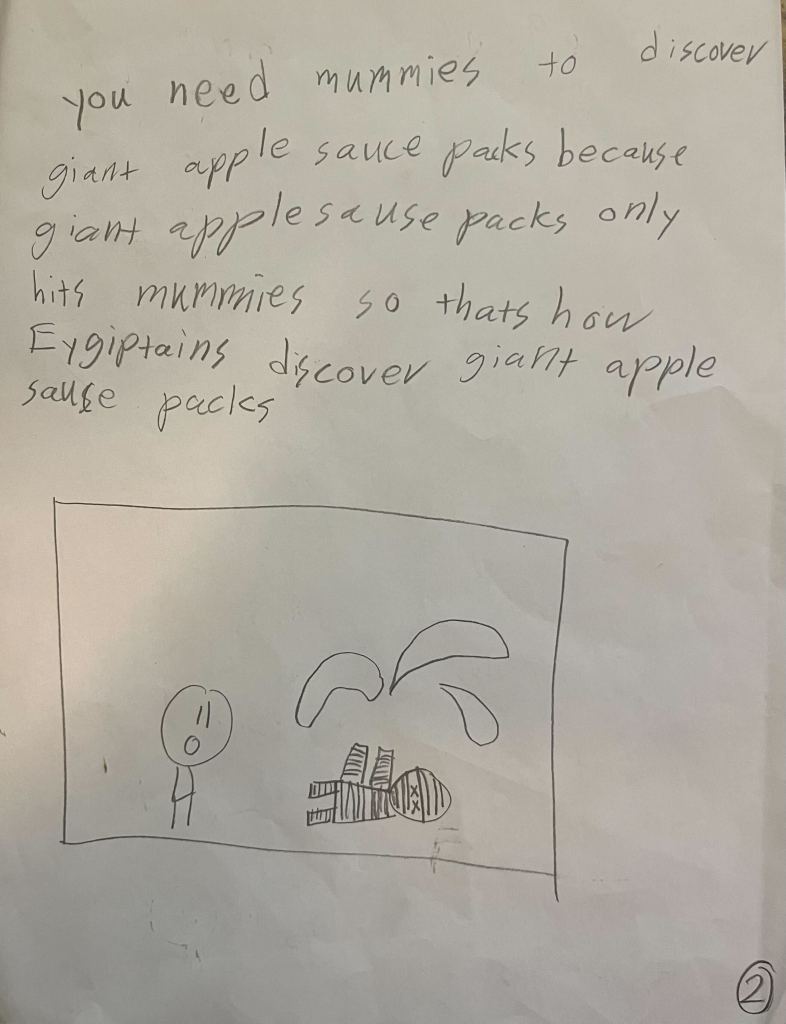 you need mummies to discover
giant apple sauce packs because
giant applesause packs only
hits mummies so thats how
Eygiptains discover giant apple
sause packs
2